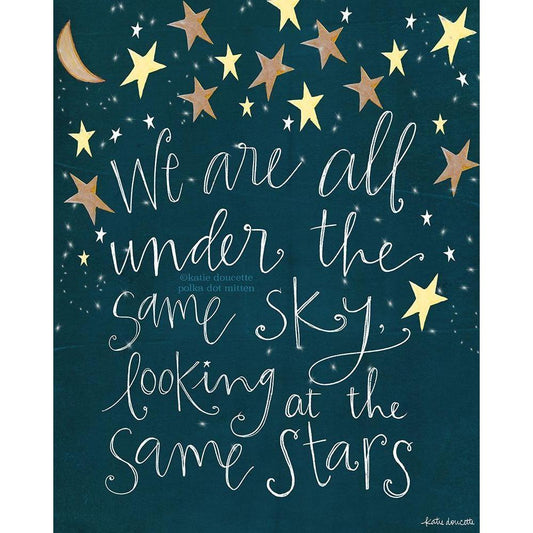 We are all
under the
©katie doucette
polka dot mitten
same sky,
looking at the
same stars
katie doucette